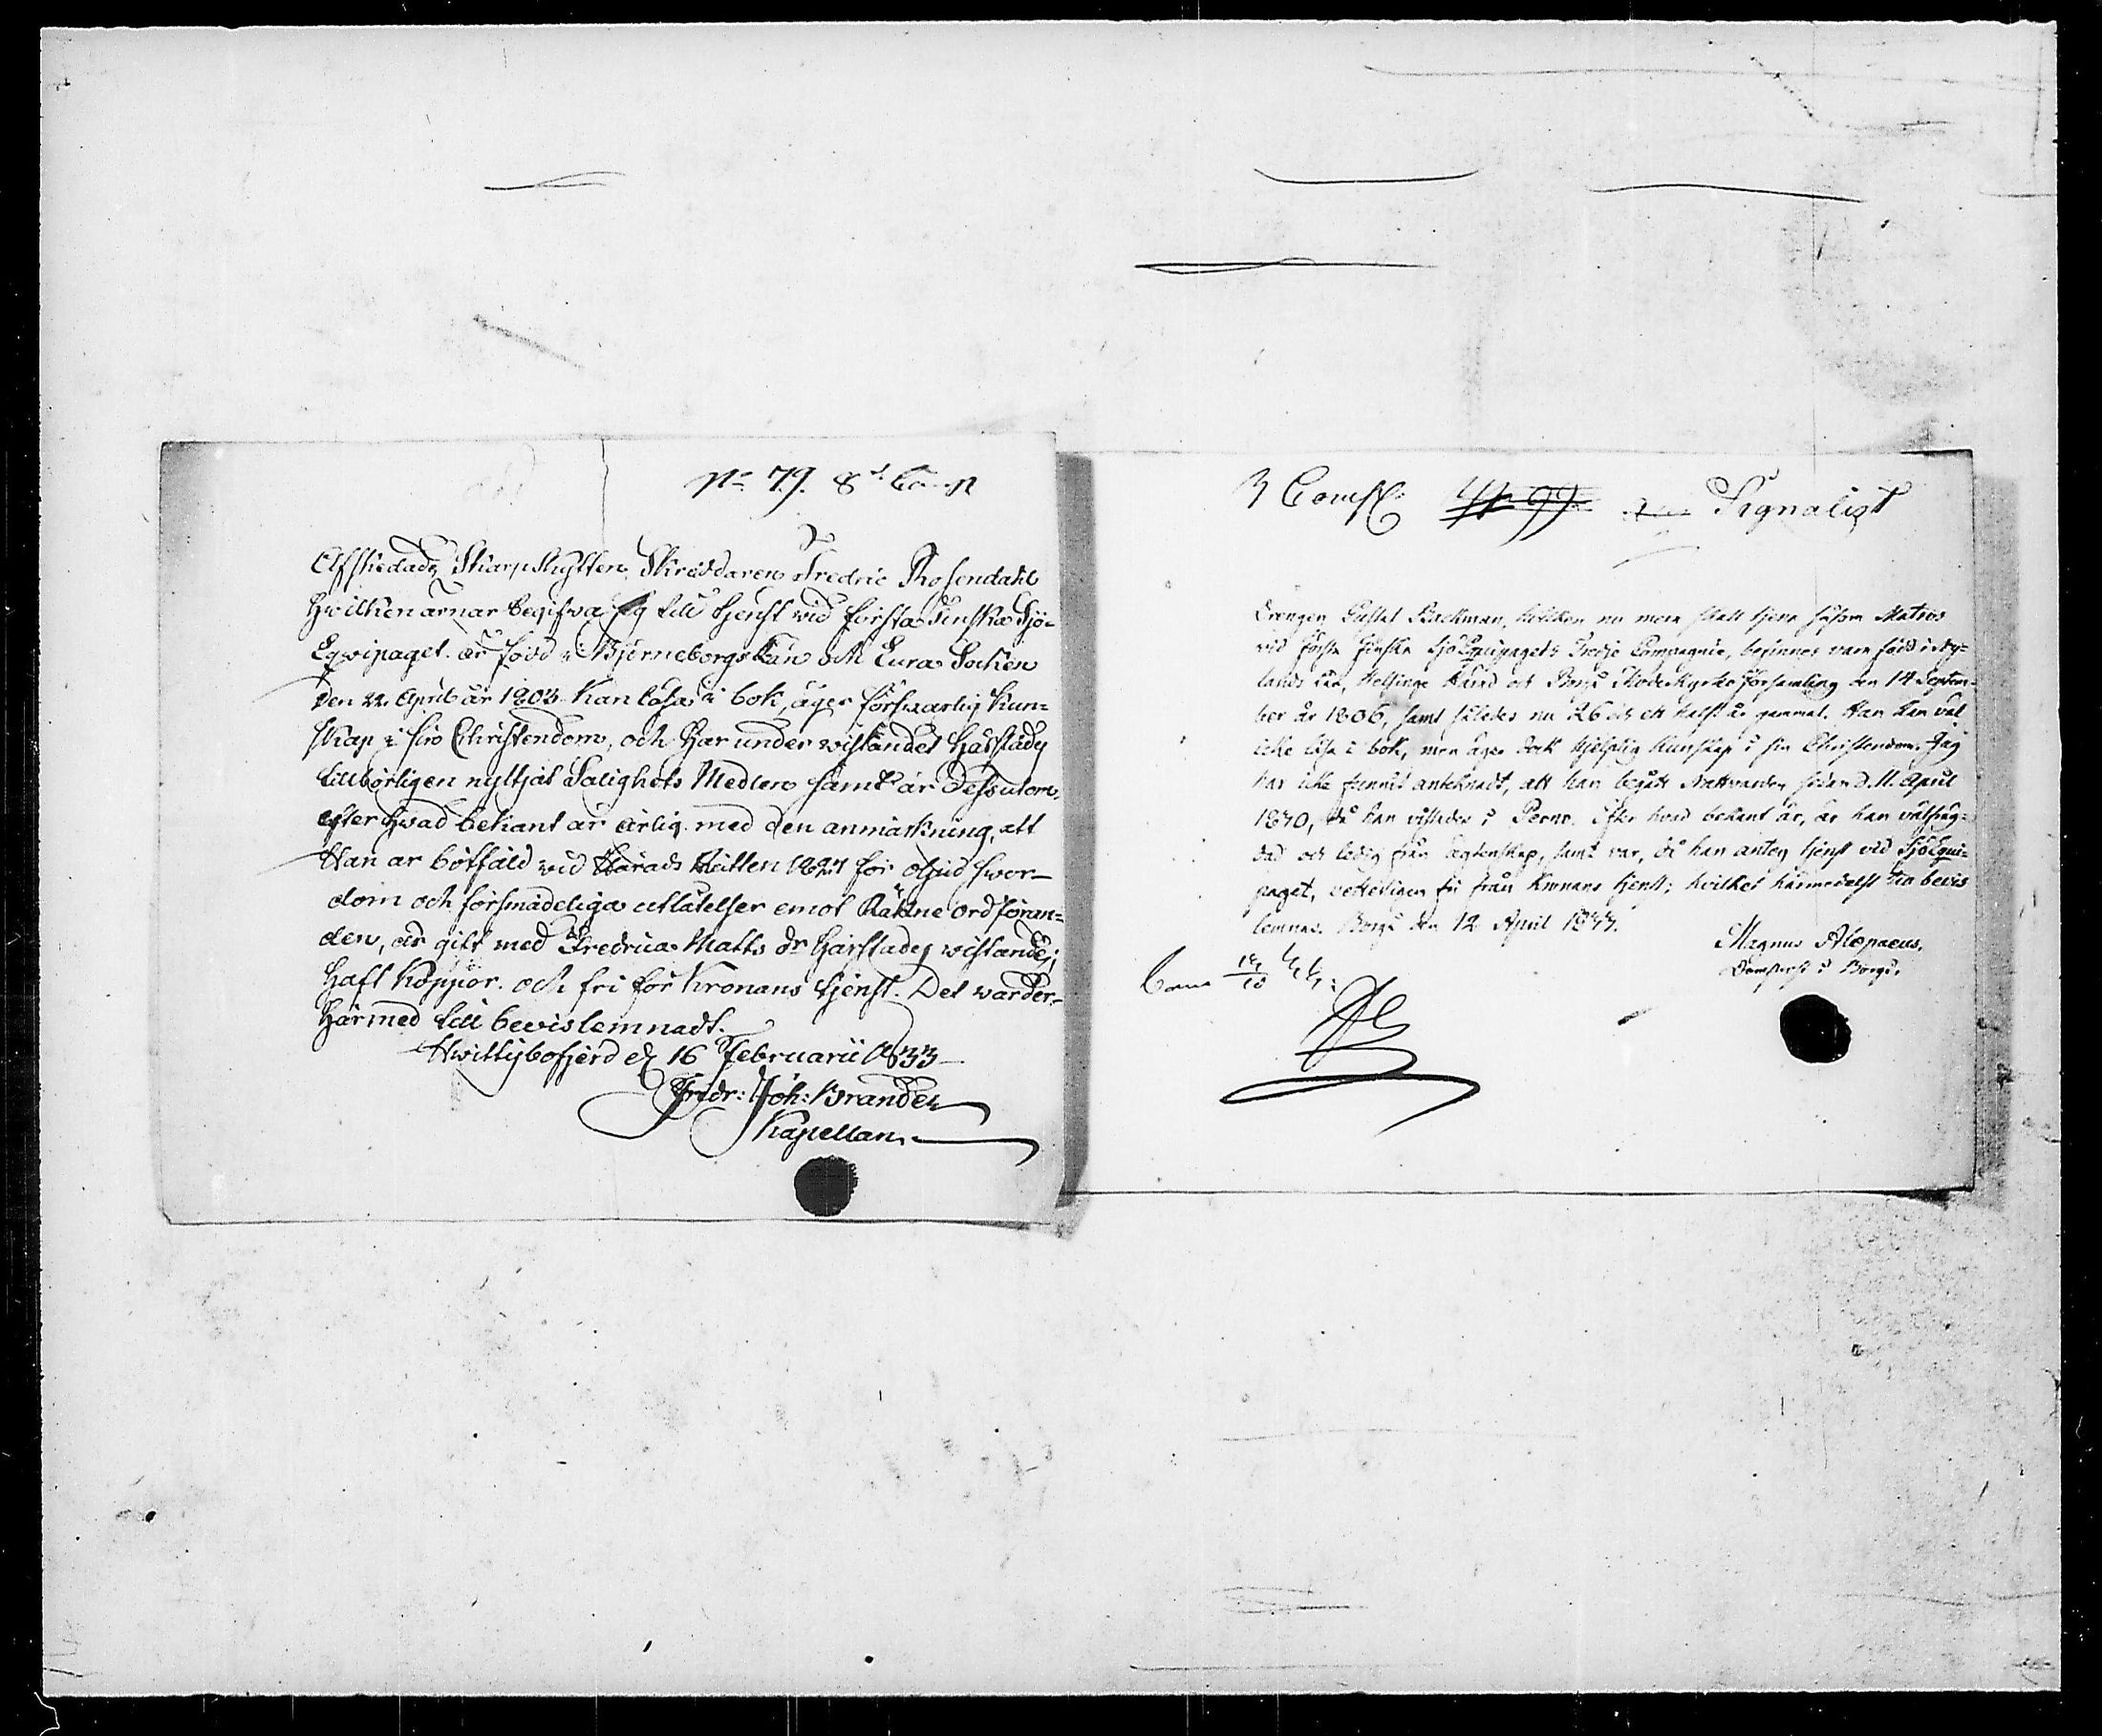 No 79. 8de Comp
Afskedade Skarpskytten, Skräddaren Fredric Rosendahl
hwilken ärnar begifwa sig till tjenst wid första Finska Sjö-
Eqwipaget. är född i Björneborgs Län och Eura Socken
den 22. April år 1803. Kan läsa i bok, äger förswarlig Kun-
skap i sin Christendom, och har under wistandet härstädes
tillbörligen nyttjat Salighets Medlen samt är dessutom,
efter hwad bekant är ärlig. med den anmärkning, att
Han är bötfäld wid Härads Rätten 1827 för oljud swor-
dom och försmädeliga utlåtelser emot Rättne ordföran-
den, är gift med Fredrica Matts dr härstädes wistande;
haft Koppor. och fri för Kronans tjenst. Det warder
härmed till bewis lemnadt.
Hwittisbofjerd d. 16 Februarii 1833
Fredr: Joh: Brander
Kapellan.
3 Comp: No 99 Signalist
Drengen Gustaf Backman, hvilken nu mera skall tjena såsom Matros
vid första Finska SjöEquipagets Tredje Compagnie, befinnes vara född i Ny-
lands Län, Helsinge Härad och Borgå Moderkyrko församling den 14 Septem-
ber år 1806, samt således nu 26 och ett halft år gammal. Han kan väl
icke läsa i bok, men äger dock hjelplig kunskap i sin Christendom. Jag
har icke funnit antecknadt, att han begått Nattvarden sedan d. 11. April
1830, då han vistades i Perno. Efter hvad bekant är, är han välfräg-
dad och ledig från ägtenskap, samt var, då han antog tjenst vid SjöEqui-
paget, vetterligen fri från Kronans tjenst; hvilket härmedelst till bevis
lemnas. Borgå den 12 April 1833.
Magnus Alopaeus,
Domprost i Borgå.